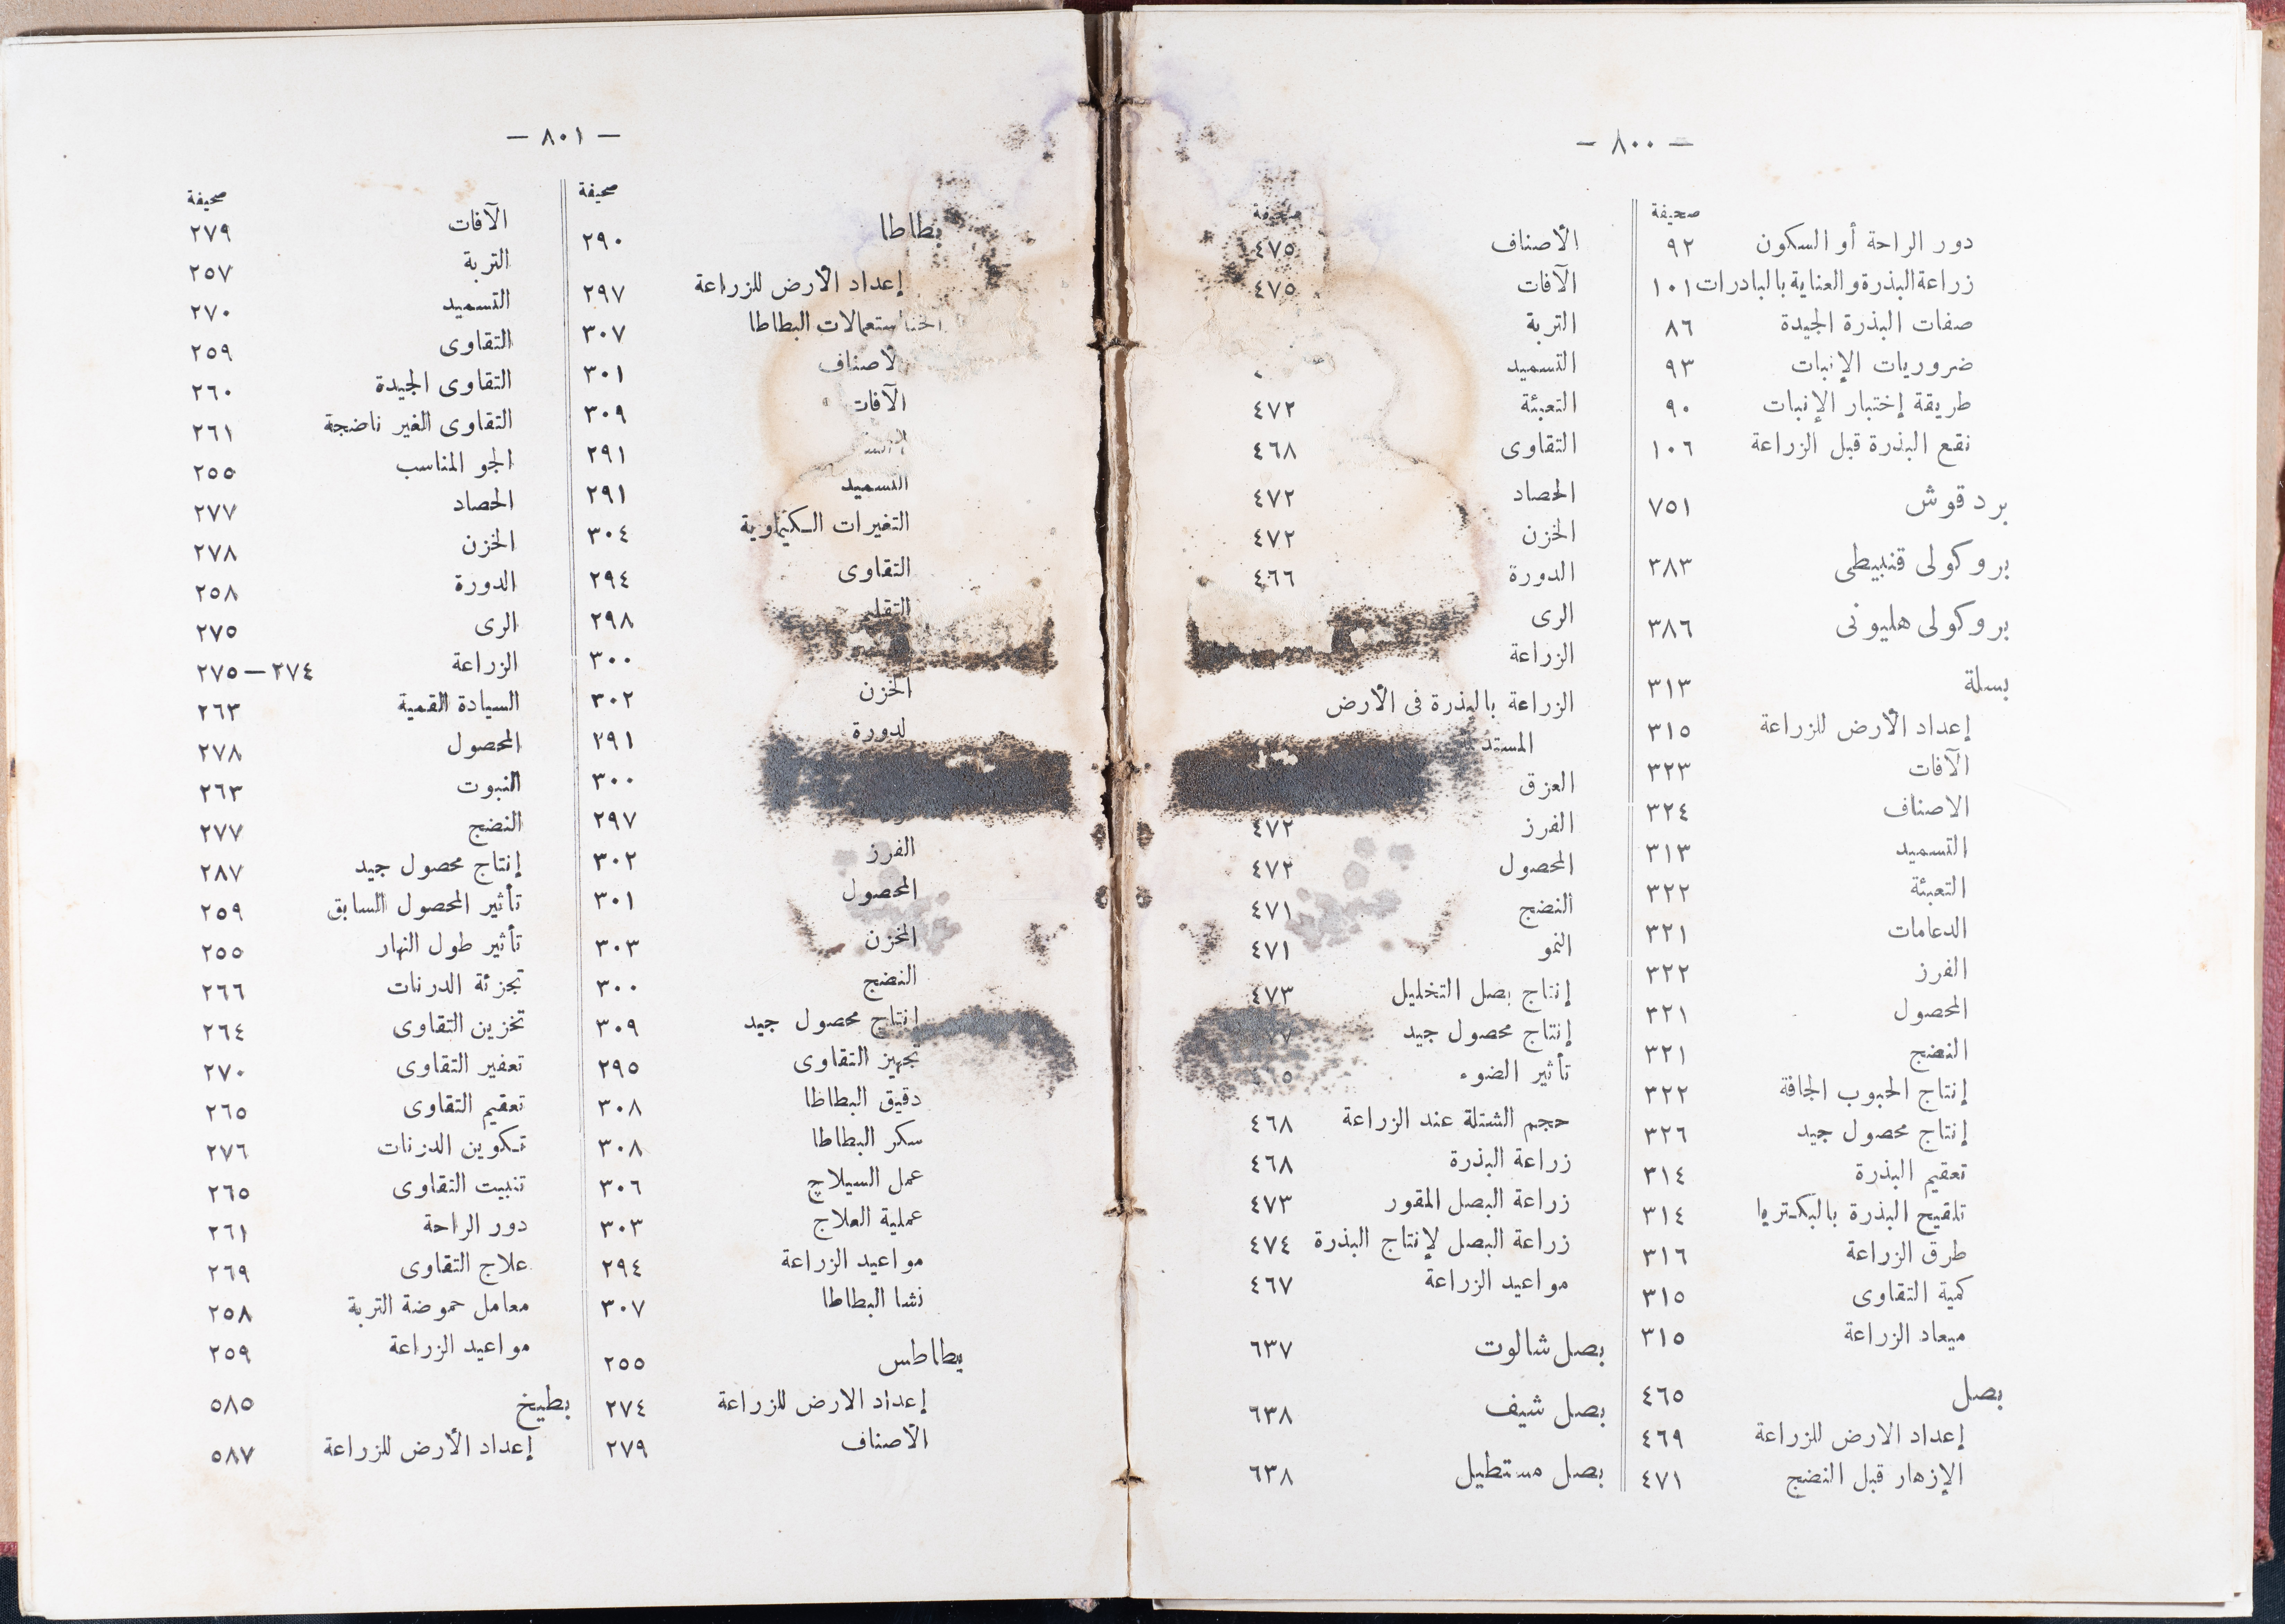 — ٨٠٠ —
صحيفة
دور الراحة أو السكون ٩٢
زراعة البذرة والعناية بالبادرات ١٠١
صفات البذرة الجيدة ٨٦
ضروريات الإنبات ٩٣
طريقة إختبار الإنبات ٩٠
نقع البذرة قبل الزراعة ١٠٦
بردقوش ٧٥١
بروكولى قنبيطى ٣٨٣
بروكولى هليونى ٣٨٦
بسلة ٣١٣
إعداد الأرض للزراعة ٣١٥
الآفات ٣٢٣
الاصناف ٣٢٤
التسميد ٣١٣
التعبئة ٣٢٢
الدعامات ٣٢١
الفرز ٣٢٢
المحصول ٣٢١
النضج ٣٢١
إنتاج الحبوب الجافة ٣٢٢
إنتاج محصول جيد ٣٢٦
تعقيم البذرة ٣١٤
تلقيح البذرة بالبكتريا ٣١٤
طرق الزراعة ٣١٦
كمية التقاوى ٣١٥
ميعاد الزراعة ٣١٥
بصل ٤٦٥
إعداد الارض للزراعة ٤٦٩
الإزهار قبل النضج ٤٧١
صحيفة
الأصناف ٤٧٥
الآفات ٤٧٥
التربة
التسميد
التعبئة ٤٧٢
التقاوى ٤٦٨
الحصاد ٤٧٢
الخزن ٤٧٢
الدورة ٤٦٦
الرى
الزراعة
الزراعة بالبذرة فى الأرض
العزق
الفرز ٤٧٢
المحصول ٤٧٢
النضج ٤٧١
النمو ٤٧١
إنتاج بصل التخليل ٤٧٣
إنتاج محصول جيد
تأثير الضوء
حجم الشتلة عند الزراعة ٤٦٨
زراعة البذرة ٤٦٨
زراعة البصل المقور ٤٧٣
زراعة البصل لإنتاج البذرة ٤٧٤
مواعيد الزراعة ٤٦٧
بصل شالوت ٦٣٧
بصل شيف ٦٣٨
بصل مستطيل ٦٣٨
— ٨٠١ —
صحيفة
بطاطا ٢٩٠
إعداد الأرض للزراعة ٢٩٧
استعمالات البطاطا ٣٠٧
لاصناف ٣٠١
الآفات ٣٠٩
٢٩١
التسميد ٢٩١
التغيرات الكيماوية ٣٠٤
التقاوى ٢٩٤
التقليم ٢٩٨
٣٠٠
الخزن ٣٠٢
لدورة ٢٩١
٣٠٠
٢٩٧
الفرز ٣٠٢
المحصول ٣٠١
المخزن ٣٠٣
النضج ٣٠٠
إنتاج محصول جيد ٣٠٩
تجهيز التقاوى ٢٩٥
دقيق البطاطا ٣٠٨
سكر البطاطا ٣٠٨
عمل السيلاج ٣٠٦
عملية العلاج ٣٠٣
مواعيد الزراعة ٢٩٤
نشا البطاطا ٣٠٧
بطاطس ٢٥٥
إعداد الارض للزراعة ٢٧٤
الأصناف ٢٧٩
صحيفة
الآفات ٢٧٩
التربة ٢٥٧
التسميد ٢٧٠
التقاوى ٢٥٩
التقاوى الجيدة ٢٦٠
التقاوى الغير ناضجة ٢٦١
الجو المناسب ٢٥٥
الحصاد ٢٧٧
الخزن ٢٧٨
الدورة ٢٥٨
الرى ٢٧٥
الزراعة ٢٧٤—٢٧٥
السيادة القمية ٢٦٣
المحصول ٢٧٨
النبوت ٢٦٣
النضج ٢٧٧
إنتاج محصول جيد ٢٨٧
تأثير المحصول السابق ٢٥٩
تأثير طول النهار ٢٥٥
تجزئة الدرنات ٢٦٦
تخزين التقاوى ٢٦٤
تعفير التقاوى ٢٧٠
تعقيم التقاوى ٢٦٥
تكوين الدرنات ٢٧٦
تنبيت التقاوى ٢٦٥
دور الراحة ٢٦١
علاج التقاوى ٢٦٩
معامل حموضة التربة ٢٥٨
مواعيد الزراعة ٢٥٩
بطيخ ٥٨٥
إعداد الأرض للزراعة ٥٨٧